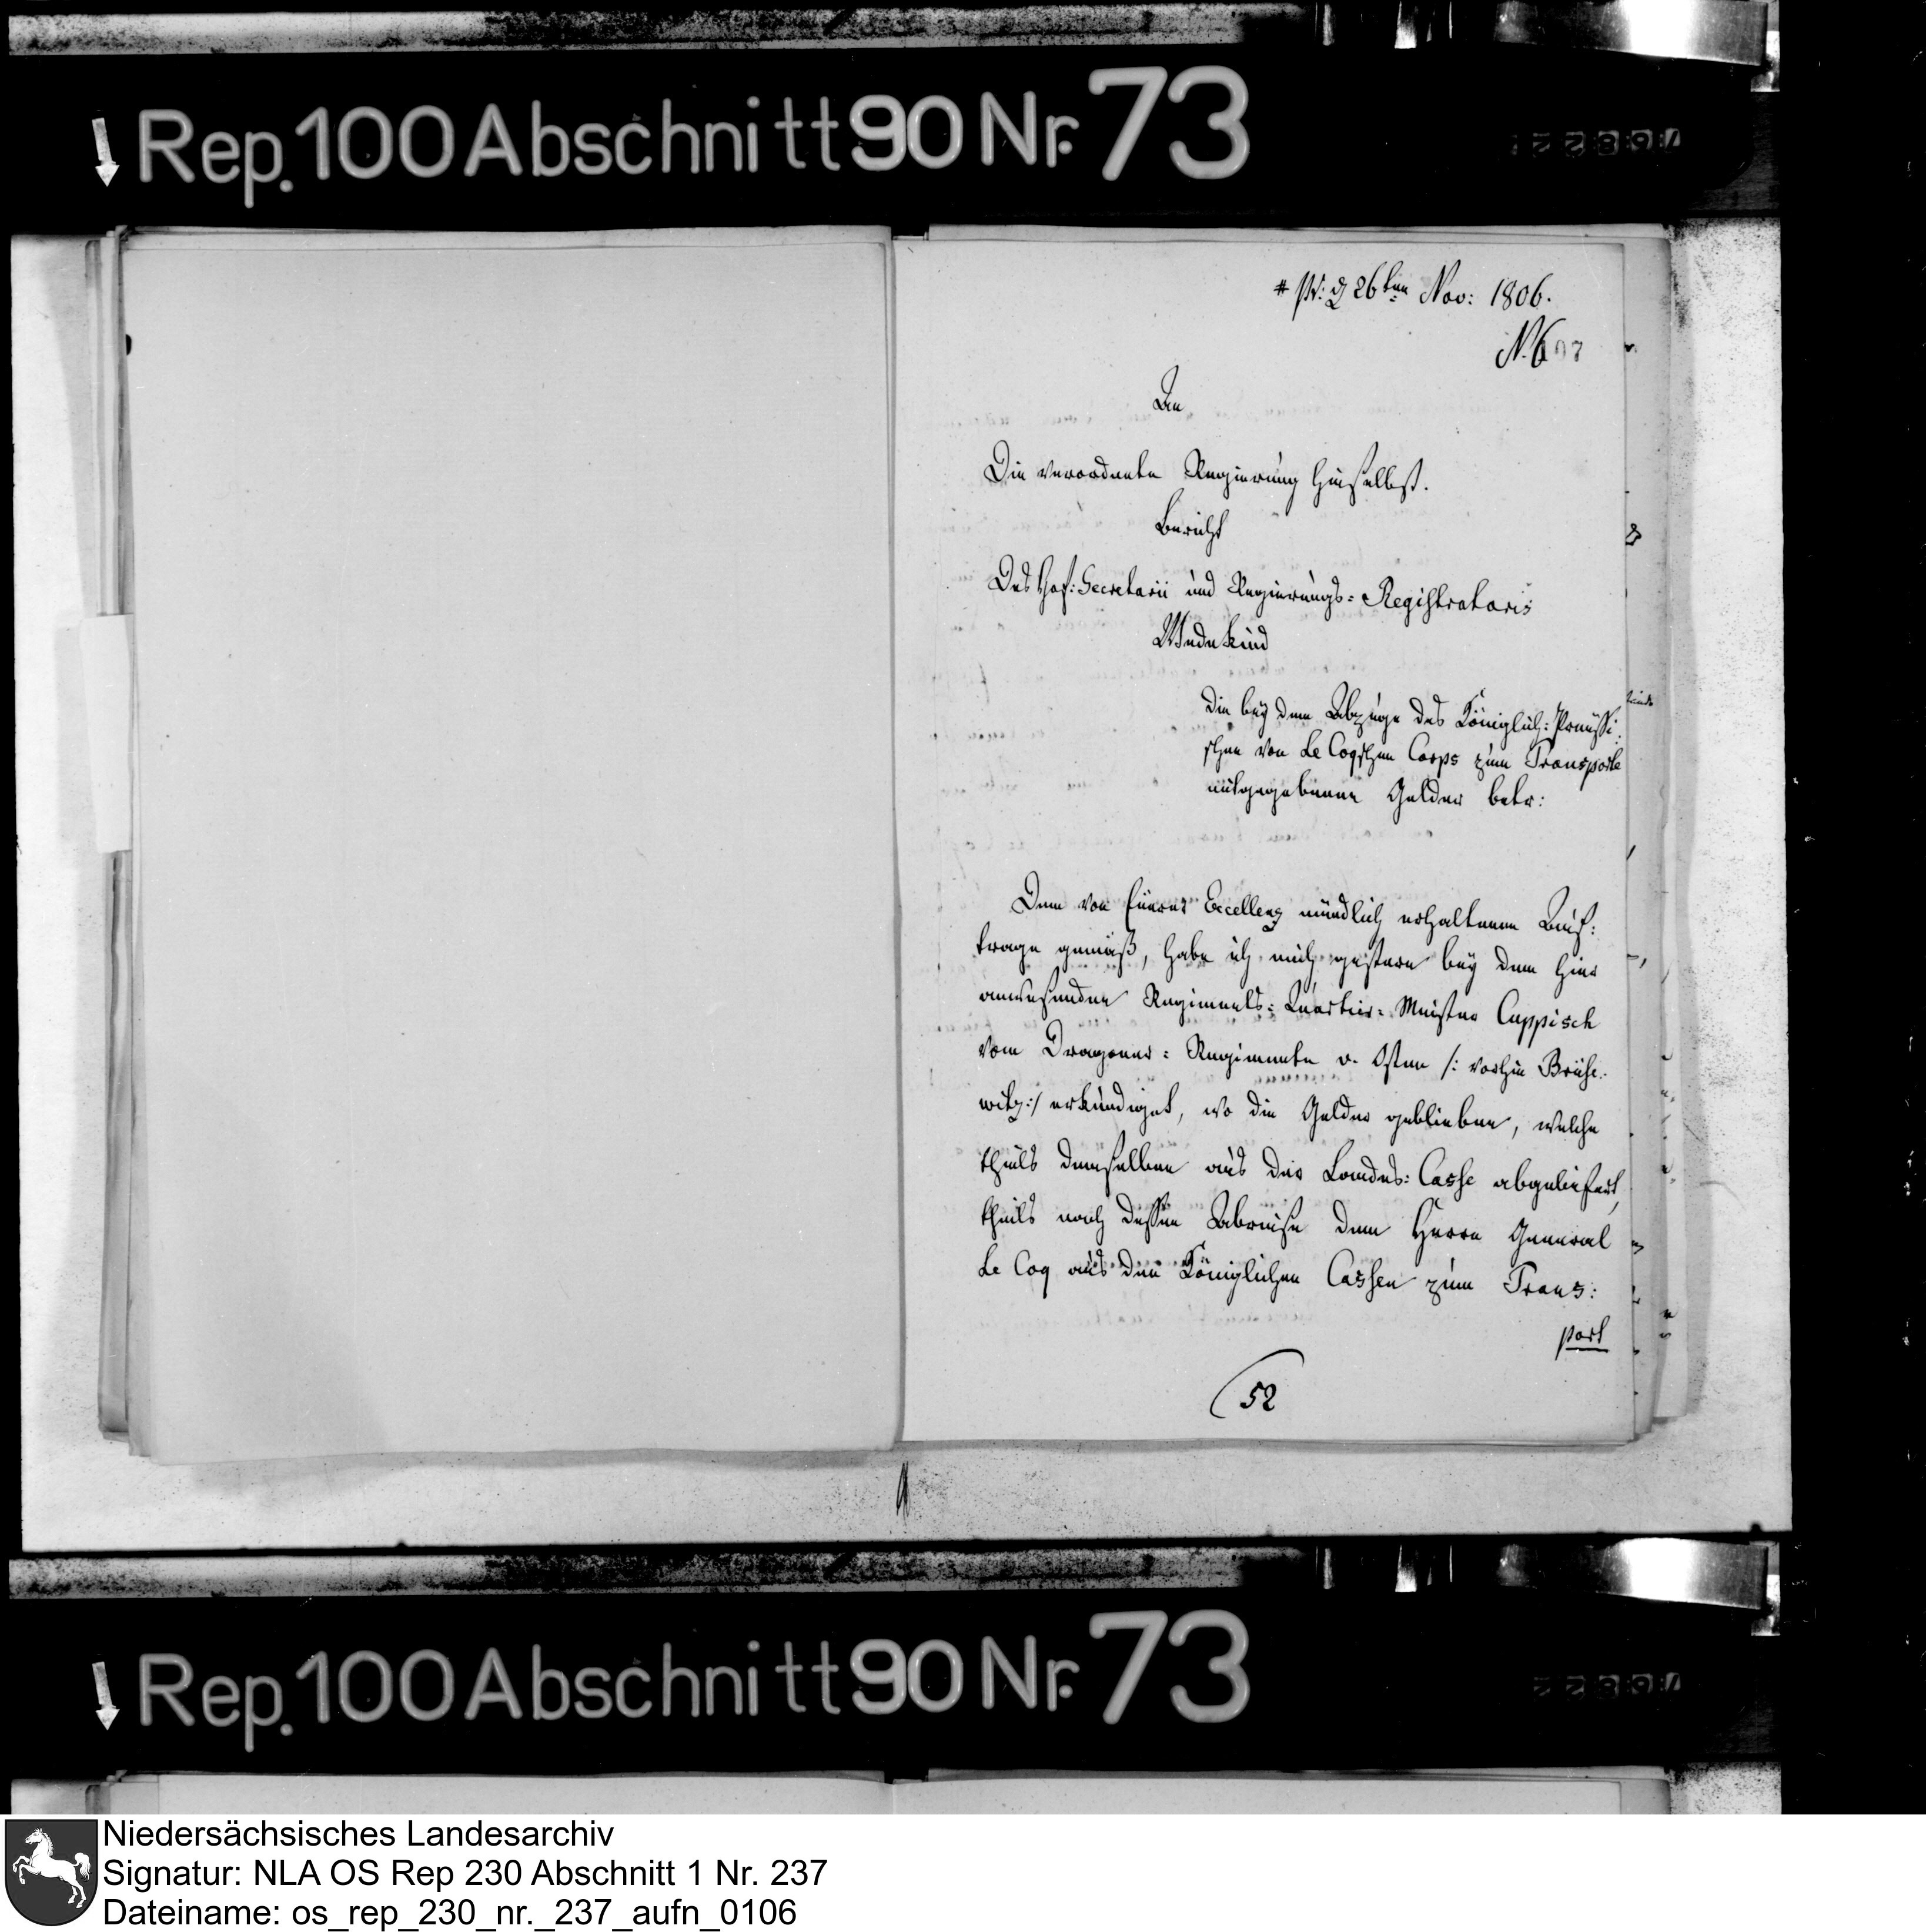 Rep. 100 Abschnitt 90 Nr. 73
pr: d 26ten Nov: 1806.
N. 6
An
Die verordnete Regierung hieselbst.
Bericht
Des Hof: Secretarii und Regierungs: Registratoris
Wedekind
die bey dem Abzuge des Königlich: Preußi:
schen von Le Coqschen Corps zum Transporte
mitgegebenen Gelder betr:
Dem von Euerer Excellenz mündlich erhaltenen Auf:
trage gemäß, habe ich mich gestern bey dem hier
anwesenden Regiments: Quartier: Meister Cappisch
vom Dragoner: Regimente v. Osten /: vorhin Brüse:
witz:/ erkundiget, wo die Gelder geblieben, welche
theils demselben aus der Landes: Casse abgeliefert,
theils nach dessen Abreise dem Herrn General
Le Coq aus den Königlichen Cassen zum Trans:
port
52
Rep. 100 Abschnitt 90 Nr. 73
Niedersächsisches Landesarchiv
Signatur: NLA OS Rep 230 Abschnitt 1 Nr. 237
Dateiname: os_rep_230_nr._237_aufn_0106